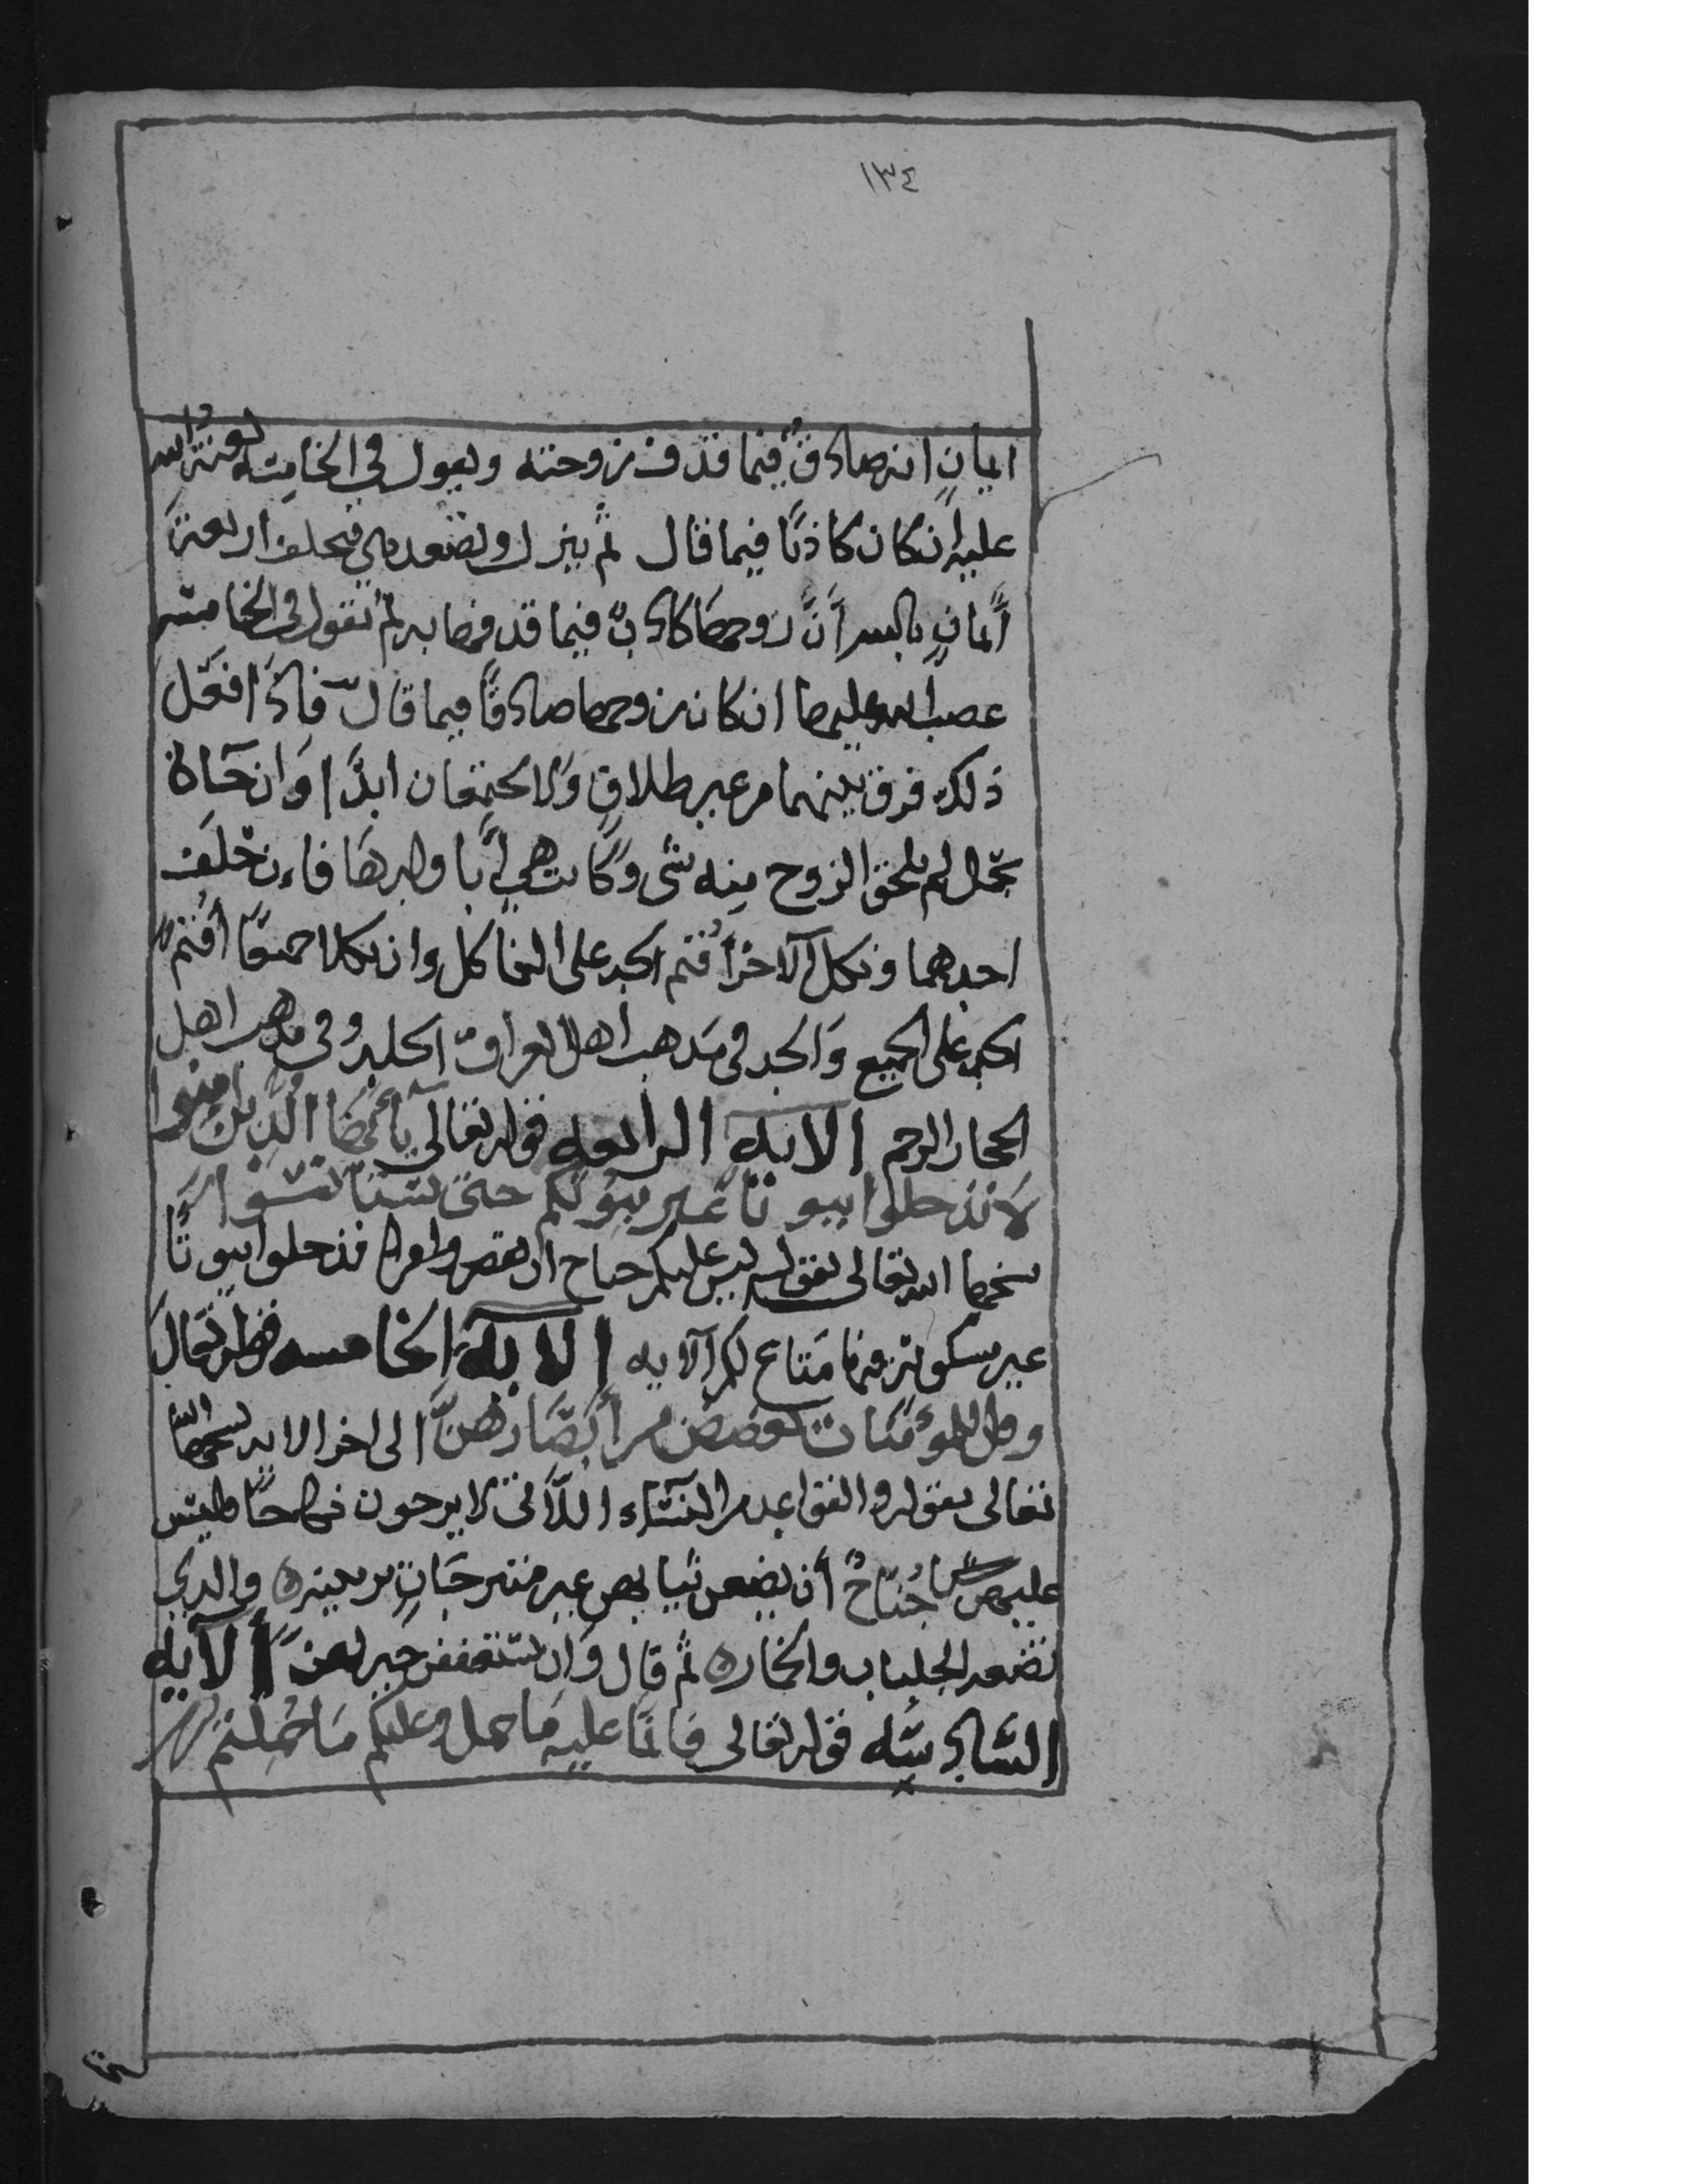 ١٣٤
ايمانٍ انه صادقٌ فيما قذف زوجته ويقول في الخامسه لعنةُ الله
عليه ان كان كاذبًا فيما قال ثم ينزل وتصعد هي فتحلف اربعة
أيمانٍ بالله أنَّ زوجها كاذبٌ فيما قذفها به ثم تقول في الخامسه
غضب الله عليها ان كان زوجها صادقًا فيما قال فاذا فعل
ذلك فرق بينهما من غير طلاقٍ ولا يجتمعان ابدًا وان جاءت
بحمل لم يلحق الزوج منه شي وكانت هي فان حلف
احدهما ونكل الآخر أقيم الحد على الناكل وان نكلا جميعًا أقيم
الحد على الجميع والحد في مذهب أهل العراق الجلد وفي مذهب اهل
الحجاز الرجم الآية الرابعه قوله تعالى يا أيها الذين امنوا
لا تدخلوا بيوتا غير بيوتكم حتى تستانسوا
نسخها الله تعالى بقوله ليس عليكم جناح ان تدخلوا بيوتًا
غير مسكونة فيها متاع لكم الآيه الآية الخامسه قوله تعالى
وقل للمؤمنات يغضضن من أبصارهن الى اخر الايه نسخها الله
تعالى بقوله والقواعد من النساء اللاتي لا يرجون نكاحًا فليس
عليهن جُناحٌ أن يضعن ثيابهن غير متبرجاتٍ بزينه والذي
تضعه الجلباب والخمار ثم قال وان يستعففن خير لهن الآيه
السادسه قوله تعالى فانما عليه ما حمل وعليكم ما حُملتم